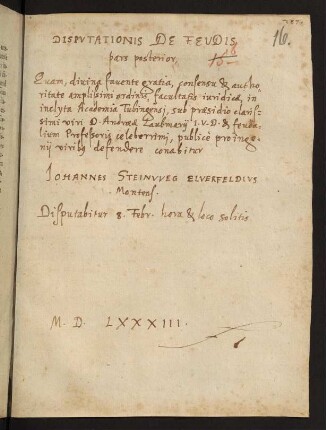 DISPUTATIONIS DE FEUDIS
pars posterior,
16.
Quam, divina favente gratia, consensu & autho
ritate amplissimi ordinis, facultatis iuridicæ, in
inclyta Academia Tubingensi, sub præsidio claris=
simi viri D. Andreæ Laubmarii I.V.D. & feuda,
lium Professoris celeberrimi, publicè pro inge,
nij viribus defendere conabitur
IOHANNES STEINWEG ELVERFELDIUS
Montens.
Disputabitur 8. Febr. hora & loco solitis
M. D. LXXXIII.